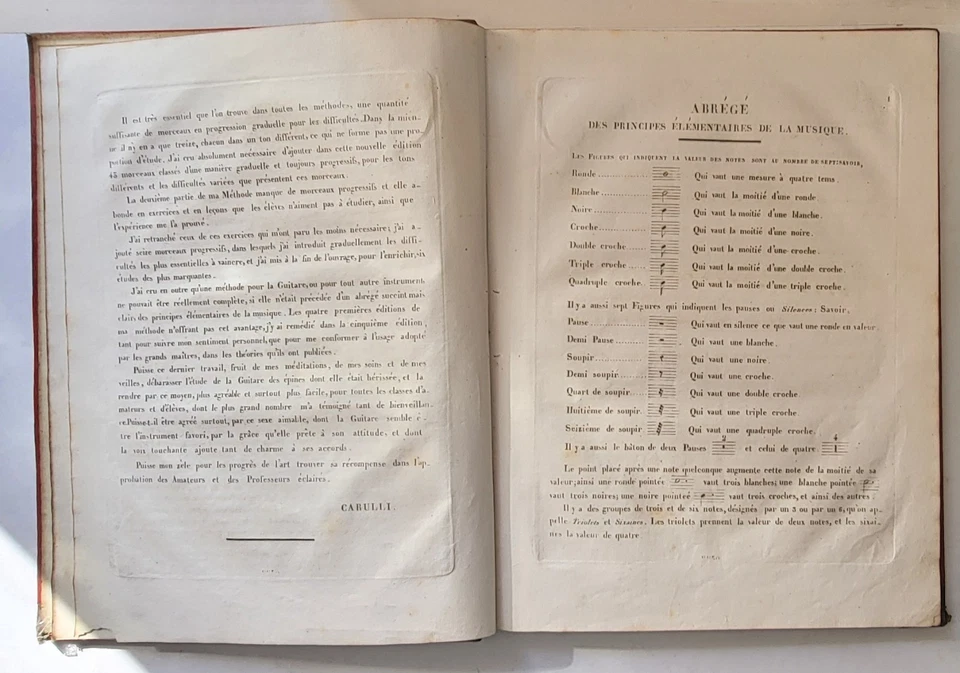 Il est très essentiel que l'on trouve dans toutes les méthodes, une quantité
suffisante de morceaux en progression graduelle pour les difficultés. Dans la mien_
ne il n'y en a que treize, chacun dans un ton différent, ce qui ne forme pas une pro_
portion d'étude. J'ai cru absolument nécessaire d'ajouter dans cette nouvelle édition
45 morceaux classés d'une manière graduelle et toujours progressifs, pour les tons
différents et les difficultés variées que présentent ces morceaux.
La deuxième partie de ma Méthode manque de morceaux progressifs et elle a_
bonde en exercices et en leçons que les élèves n'aiment pas à étudier, ainsi que
l'expérience me l'a prouvé.
J'ai retranché ceux de ces exercices qui m'ont paru les moins nécessaire; j'ai a_
jouté seize morceaux progressifs, dans lesquels j'ai introduit graduellement les diffi_
cultés les plus essentielles à vaincre, et j'ai mis à la fin de l'ouvrage, pour l'enrichir, six
études des plus marquantes.
J'ai cru en outre qu'une méthode pour la Guitare, ou pour tout autre instrument
ne pouvait être réellement complète, si elle n'était précédée d'un abrégé succint mais
clair des principes élémentaires de la musique. Les quatre premières éditions de
ma méthode n'offrant pas cet avantage, j'y ai remédié dans la cinquième édition,
tant pour suivre mon sentiment personnel, que pour me conformer à l'usage adopté
par les grands maîtres, dans les théories qu'ils ont publiées.
Puisse ce dernier travail, fruit de mes méditations, de mes soins et de mes
veilles, débarasser l'étude de la Guitare des épines dont elle était hérissée, et la
rendre par ce moyen, plus agréable et surtout plus facile, pour toutes les classes d'a_
mateurs et d'élèves, dont le plus grand nombre m'a témoigné tant de bienveillan_
ce. Puisse-t-il être agréé surtout, par ce sexe aimable, dont la Guitare semble ê_
tre l'instrument favori, par la grâce qu'elle prête à son attitude, et dont
la voix touchante ajoute tant de charme à ses accords.
Puisse mon zèle pour les progrès de l'art trouver sa récompense dans l'ap_
probation des Amateurs et des Professeurs éclairés.
CARULLI.
1
ABRÉGÉ
DES PRINCIPES ÉLÉMENTAIRES DE LA MUSIQUE.
LES FIGURES QUI INDIQUENT LA VALEUR DES NOTES SONT AU NOMBRE DE SEPT: SAVOIR,
Ronde Qui vaut une mesure à quatre tems.
Blanche Qui vaut la moitié d'une ronde.
Noire Qui vaut la moitié d'une blanche.
Croche Qui vaut la moitié d'une noire.
Double croche Qui vaut la moitié d'une croche.
Triple croche Qui vaut la moitié d'une double croche.
Quadruple croche Qui vaut la moitié d'une triple croche.
Il y a aussi sept Figures qui indiquent les pauses ou Silences: Savoir.
Pause Qui vaut en silence ce que vaut une ronde en valeur.
Demi Pause Qui vaut une blanche.
Soupir Qui vaut une noire.
Demi soupir Qui vaut une croche.
Quart de soupir Qui vaut une double croche.
Huitième de soupir Qui vaut une triple croche.
Seizième de soupir Qui vaut une quadruple croche.
Il y a aussi le bâton de deux Pauses 2 et celui de quatre 4
Le point placé après une note quelconque augmente cette note de la moitié de sa
valeur; ainsi une ronde pointée vaut trois blanches; une blanche pointée
vaut trois noires; une noire pointée vaut trois croches, et ainsi des autres.
Il y a des groupes de trois et de six notes, désignés par un 3 ou par un 6, qu'on ap_
pelle Triolets et Sixaines. Les triolets prennent la valeur de deux notes, et les sixai_
nes la valeur de quatre.